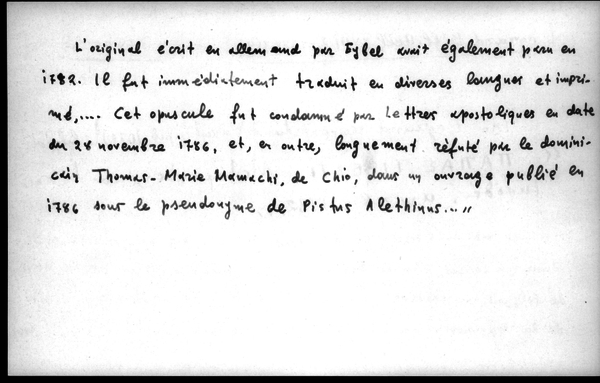 L'original écrit en allemand par Eybel avait également paru en
1782. Il fut immédiatement traduit en diverses langues et impri-
mé,.... Cet opuscule fut condamné par Lettres apostoliques en date
du 28 novembre 1786, et, en outre, longuement réfuté par le domini-
cain Thomas-Marie Mamachi, de Chio, dans un ouvrage publié en
1786 sous le pseudonyme de Pistus Alethinus...„